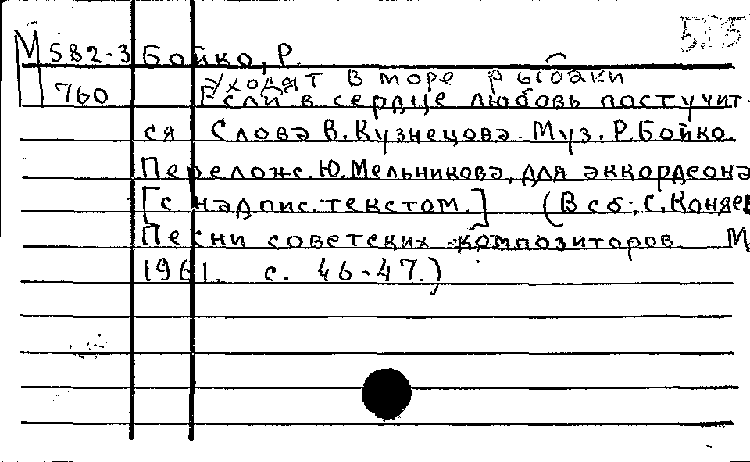 М 582-3 Бойко, Р.
Уходят в море рыбаки
760 Если в сердце любовь постучит-
ся Слова В. Кузнецова. Муз. Р. Бойко.
Перелож. Ю. Мельникова, для аккордеона
[с надпис. текстом.] (В сб: С. Коняев
Песни советских композиторов М
1961. с. 46-47.)